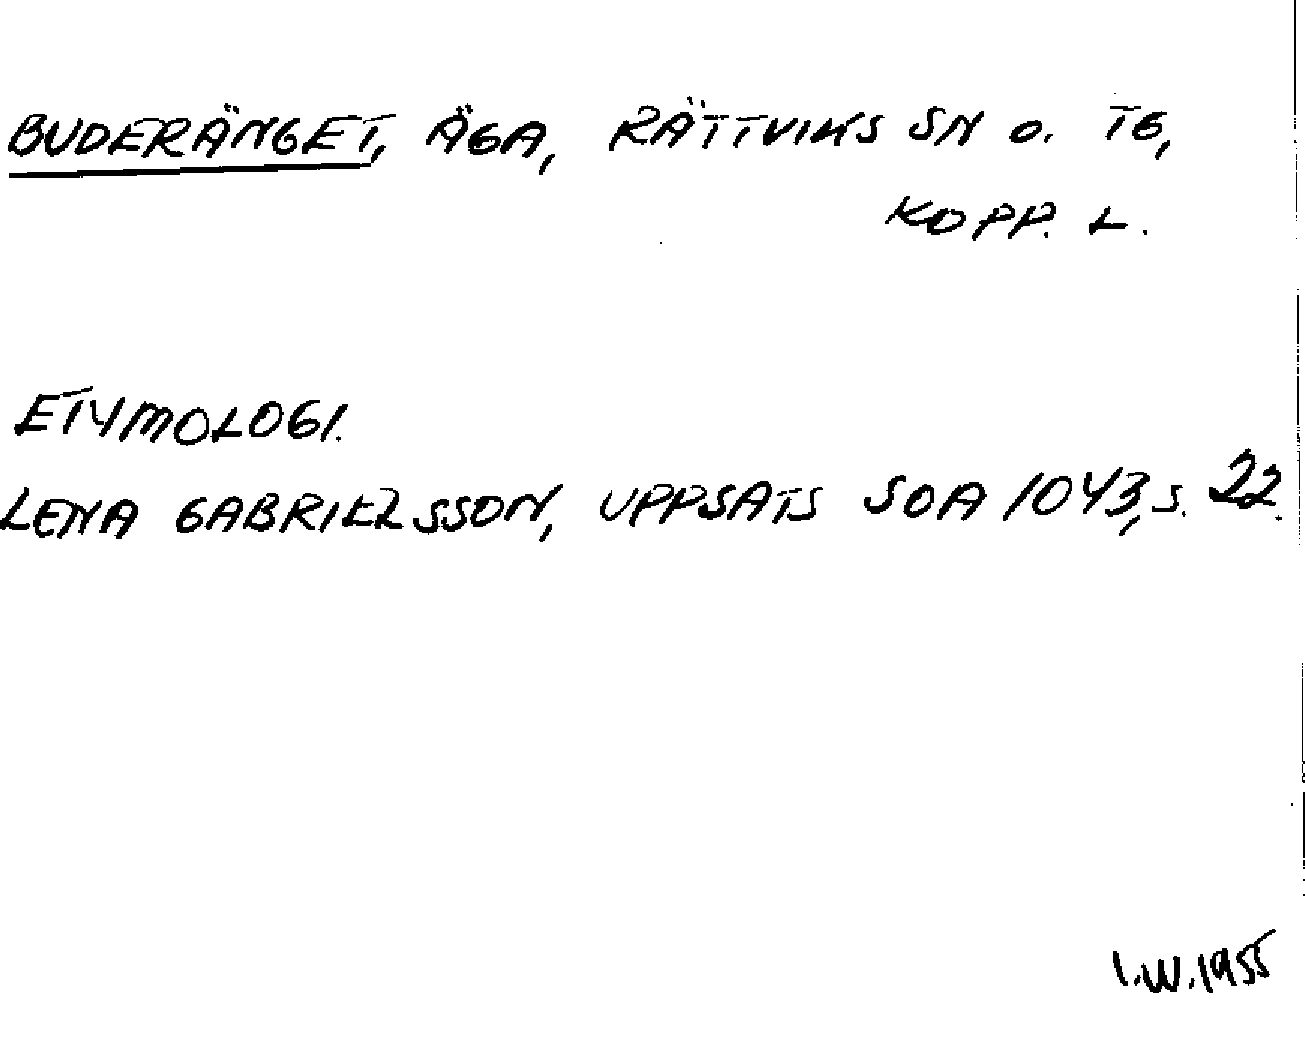 BUDERÄNGET, ÄGA, RÄTTVIKS SN O. TG,
KOPP. L.
ETYMOLOGI.
LENA GABRIELSSON, UPPSATS SOA 1043, S. 22.
I.W. 1955